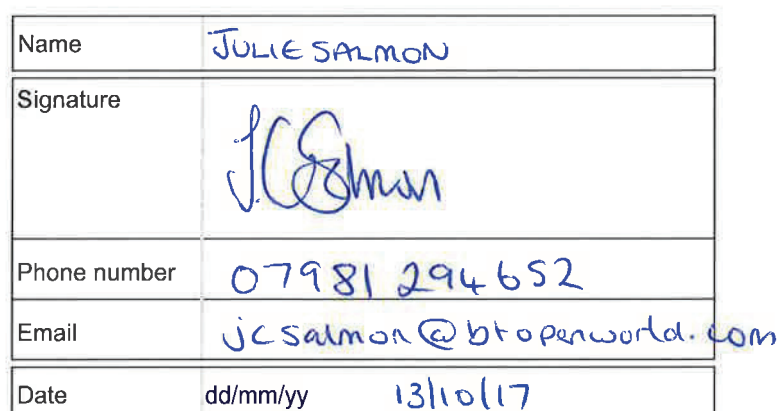 Name JULIE SALMON
Signature J.C Salmon
Phone number 07981 294652
Email jcsalmon@btopenworld.com
Date dd/mm/yy 13/10/17